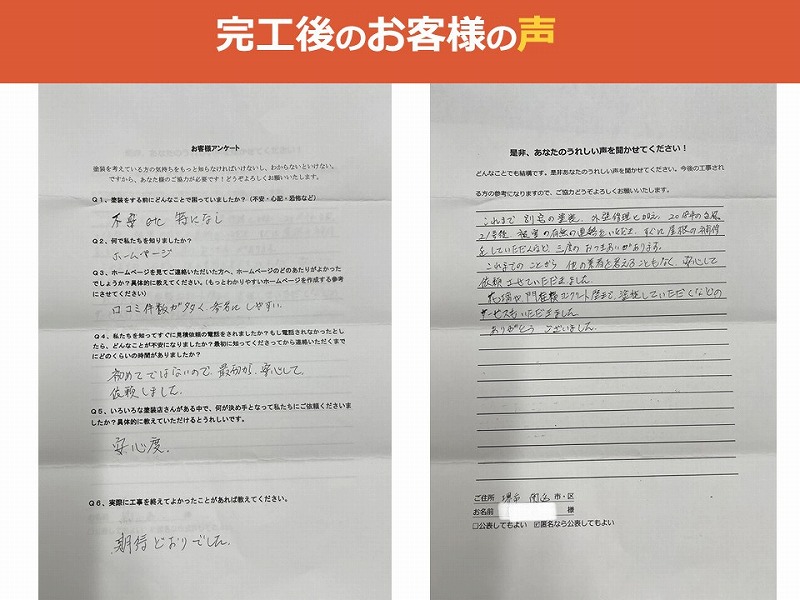 完工後のお客様の声
お客様アンケート
塗装を考えている方の気持ちをもっと知らなければいけないし、わからないといけない。
ですから、あなた様のご協力が必要です！どうぞよろしくお願いいたします。
Q１、塗装をする前にどんなことで困っていましたか？（不安・心配・恐怖など）
不安 etc 特になし
Q２、何で私たちを知りましたか？
ホームページ
Q３、ホームページを見てご連絡いただいた方へ、ホームページのどのあたりがよかった
でしょうか？具体的に教えてください。（もっとわかりやすいホームページを作成する参考
にさせてください）
口コミ件数が多く、参考にしやすい。
Q４、私たちを知ってすぐに見積依頼の電話をされましたか？もし電話されなかったとし
たら、どんなことが不安になりましたか？最初に知ってくださってから連絡いただくまで
にどのくらいの時間がありましたか？
初めてではないので、最初から、安心して、
依頼しました。
Q５、いろいろな塗装店さんがある中で、何が決め手となって私たちにご依頼くださいま
したか？具体的に教えていただけるとうれしいです。
安心度。
Q６、実際に工事を終えてよかったことがあれば教えてください。
期待どおりでした。
是非、あなたのうれしい声を聞かせてください！
どんなことでも結構です。是非あなたのうれしい声を聞かせてください。今後の工事され
る方の参考になりますので、ご協力どうぞよろしくお願いいたします。
これまで 別宅の塗装、外壁修理に加え、2018年の台風
21号後、被害の有無の連絡をいただき、すぐに屋根の補修
をしていただくなど、三度のおつきあいがあります。
これまでのことから 他の業者を考えることもなく、安心して
依頼させていただきました。
花壇や門 コンクリート 塗装していただくなどの
サービスもいただきました
ありがとう ございました。
ご住所 堺市 市・区
お名前 様
□公表してもよい ☑匿名なら公表してもよい